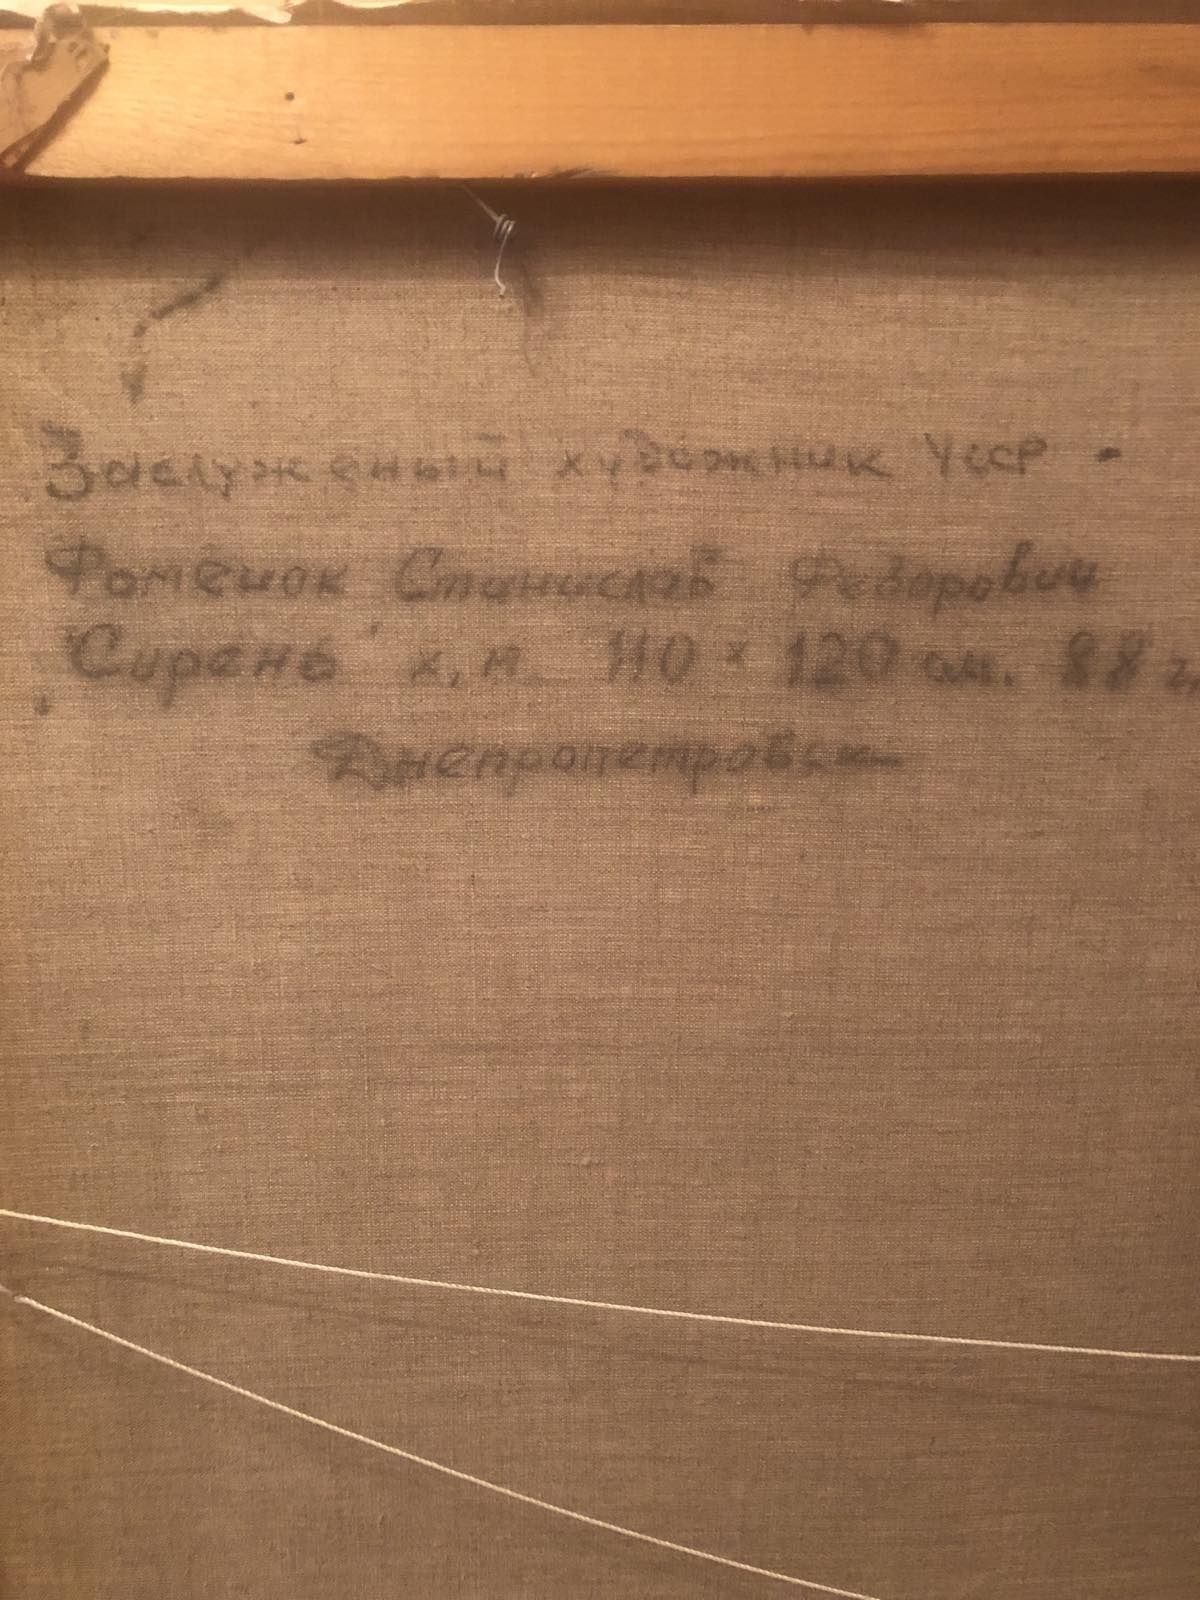 Заслуженый художник УССР -
Фоменок Станислав Федорович
"Сирень" х, м 110 × 120 см. 88 г.
Днепропетровск